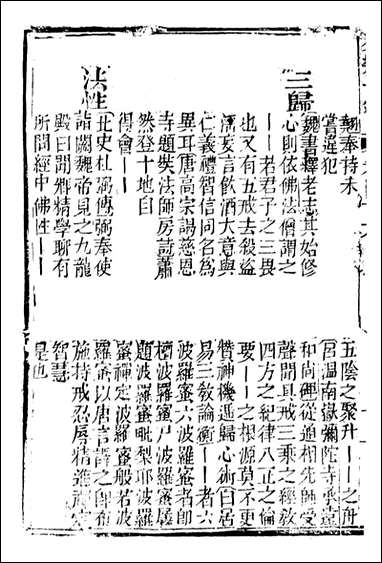 勤奉持未
嘗違犯
三歸
魏書釋老志其始修
心則依佛法僧謂之
——若君子之三畏
也又有五戒去殺盜
淫妄言飲酒大意與
仁義禮智信同名為
異耳唐高宗謁慈恩
寺題奘法師房詩蕭
然登十地自
得會——
法性
北史杜弼傳弼奉使
詣闕魏帝見之九龍
殿曰聞卿精學聊有
所問經中佛性——
五陰之聚升——之舟
呂溫南嶽彌陀寺承遠
和尚碑從通相先師受
聲聞具戒三乘之經教
四方之紀律八正之倫
要——之根源莫不更
贊神機遞歸心術白居
易三教論衡——者六
波羅蜜六波羅蜜者即
檀波羅蜜尸波羅蜜羼
提波羅蜜毗梨耶波羅
蜜禪定波羅蜜般若波
羅蜜以唐言譯之即布
施持戒忍辱精進禪定
智慧
是也